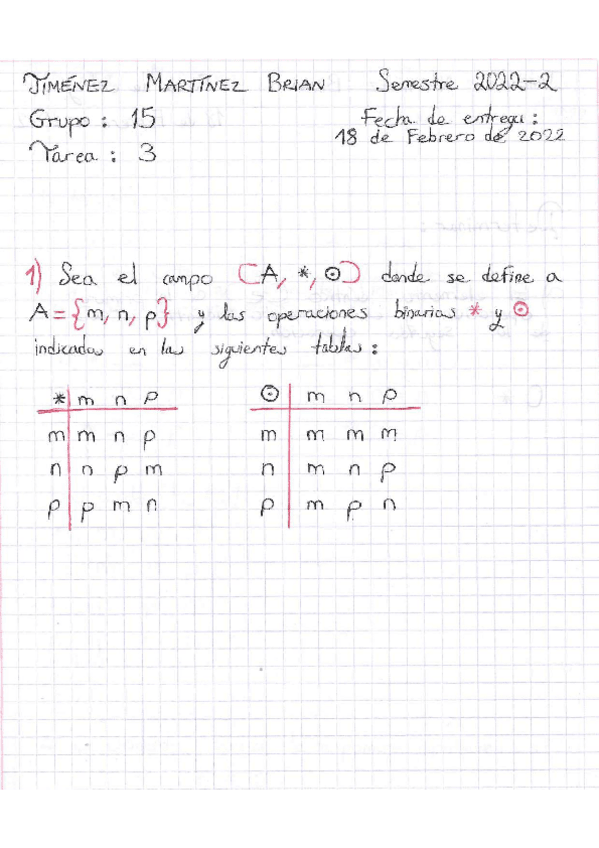 JIMÉNEZ MARTÍNEZ BRIAN Semestre 2022-2
Grupo : 15 Fecha de entrega :
18 de Febrero de 2022
Tarea : 3
1) Sea el campo (A, *, ⊙) donde se define a
A = {m, n, p} y las operaciones binarias * y ⊙
indicadas en las siguientes tablas :
* m n p
m m n p
n n p m
p p m n
⊙ m n p
m m m m
n m n p
p m p n